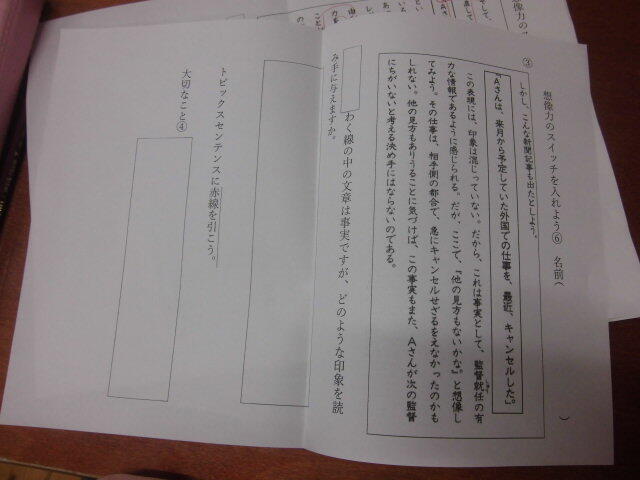 想像力のスイッチを入れよう⑥　名前（　　　）
③
しかし、こんな新聞記事も出たとしよう。
「Aさんは、来月から予定していた外国での仕事を、最近、キャンセルした。」
この表現には、印象は混じっていない。だから、これは事実として、監督就任の有
力な情報であるように感じられる。だが、ここで、『他の見方もないかな』と想像し
てみよう。その仕事は、相手側の都合で、急にキャンセルせざるをえなかったのかも
しれない。他の見方もありうることに気づけば、この事実もまた、Aさんが次の監督
にちがいないと考える決め手にはならないのである。
わく線の中の文章は事実ですが、どのような印象を読
み手に与えますか。
トピックスセンテンスに赤線を引こう。
大切なこと④